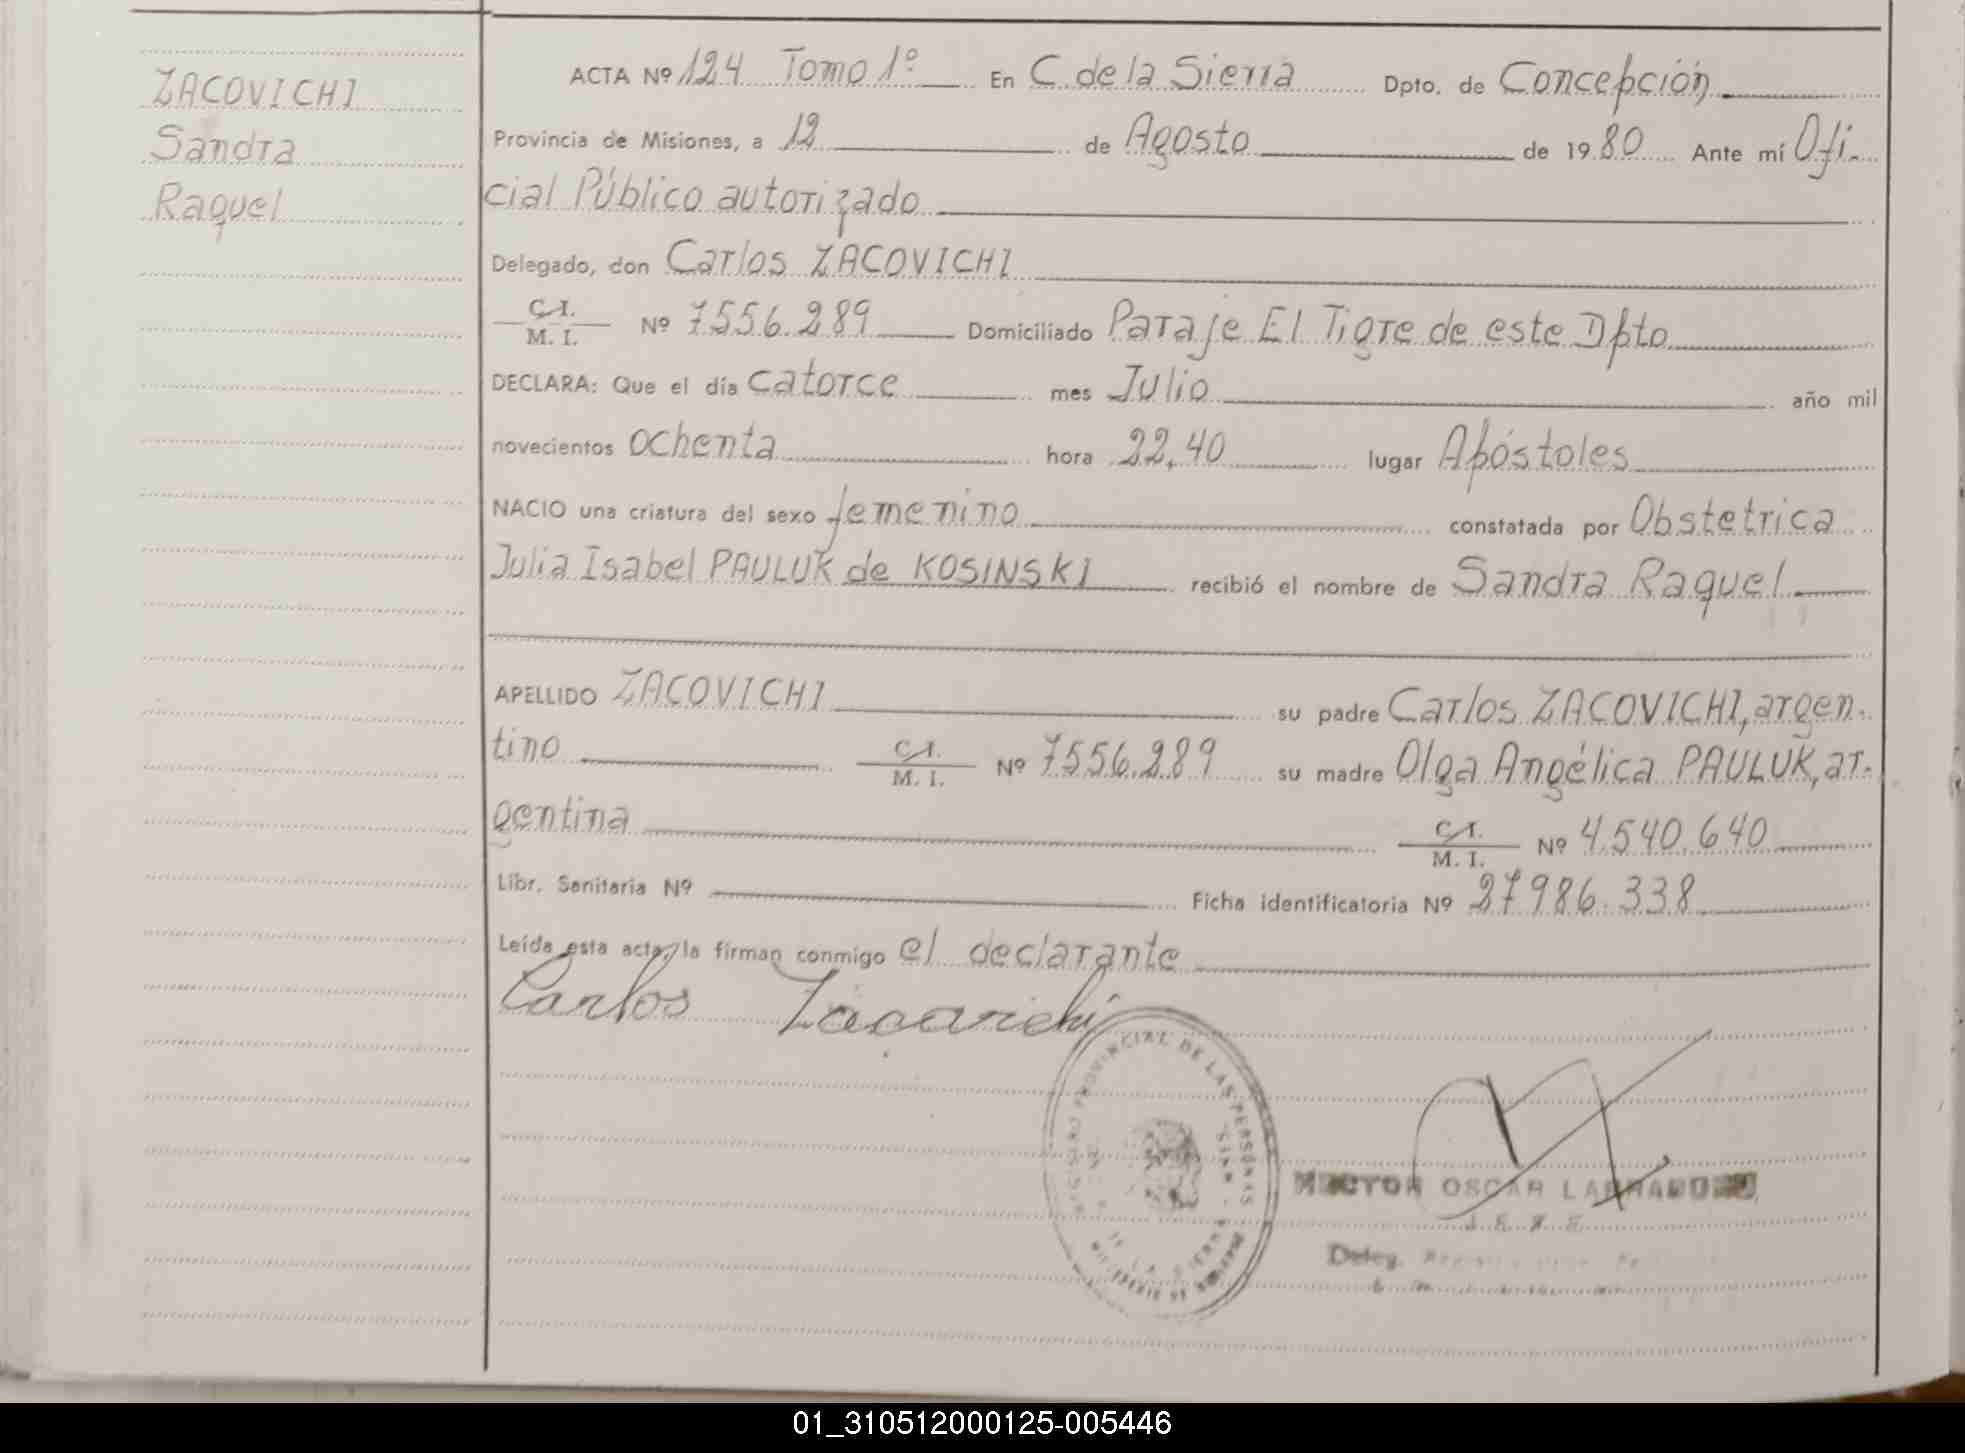 ZACOVICHI
Sandra
Raquel
ACTA Nº 124 Tomo 1º En C. de la Sierra Dpto. de Concepción
Provincia de Misiones, a 12 de Agosto de 1980 Ante mí Ofi-
cial Público autorizado
Delegado, don Carlos ZACOVICHI
C.I.
M. I. Nº 7556.289 Domiciliado Paraje El Tigre de este Dpto
DECLARA: Que el día catorce mes Julio año mil
novecientos ochenta hora 22,40 lugar Apóstoles
NACIO una criatura del sexo femenino constatada por Obstetrica
Julia Isabel PAULUK de KOSINSKI recibió el nombre de Sandra Raquel
APELLIDO ZACOVICHI su padre Carlos ZACOVICHI, argen-
tino C.I.
M. I. Nº 7556.289 su madre Olga Angélica PAULUK, ar-
gentina C.I.
M. I. Nº 4.540.640
Libr. Sanitaria Nº Ficha identificatoria Nº 27986.338
Leída esta acta, la firman conmigo el declarante
Carlos Zacovichi
PROVINCIAL DE LAS PERSONAS
OSCAR
JEFE
Deleg.
01_310512000125-005446